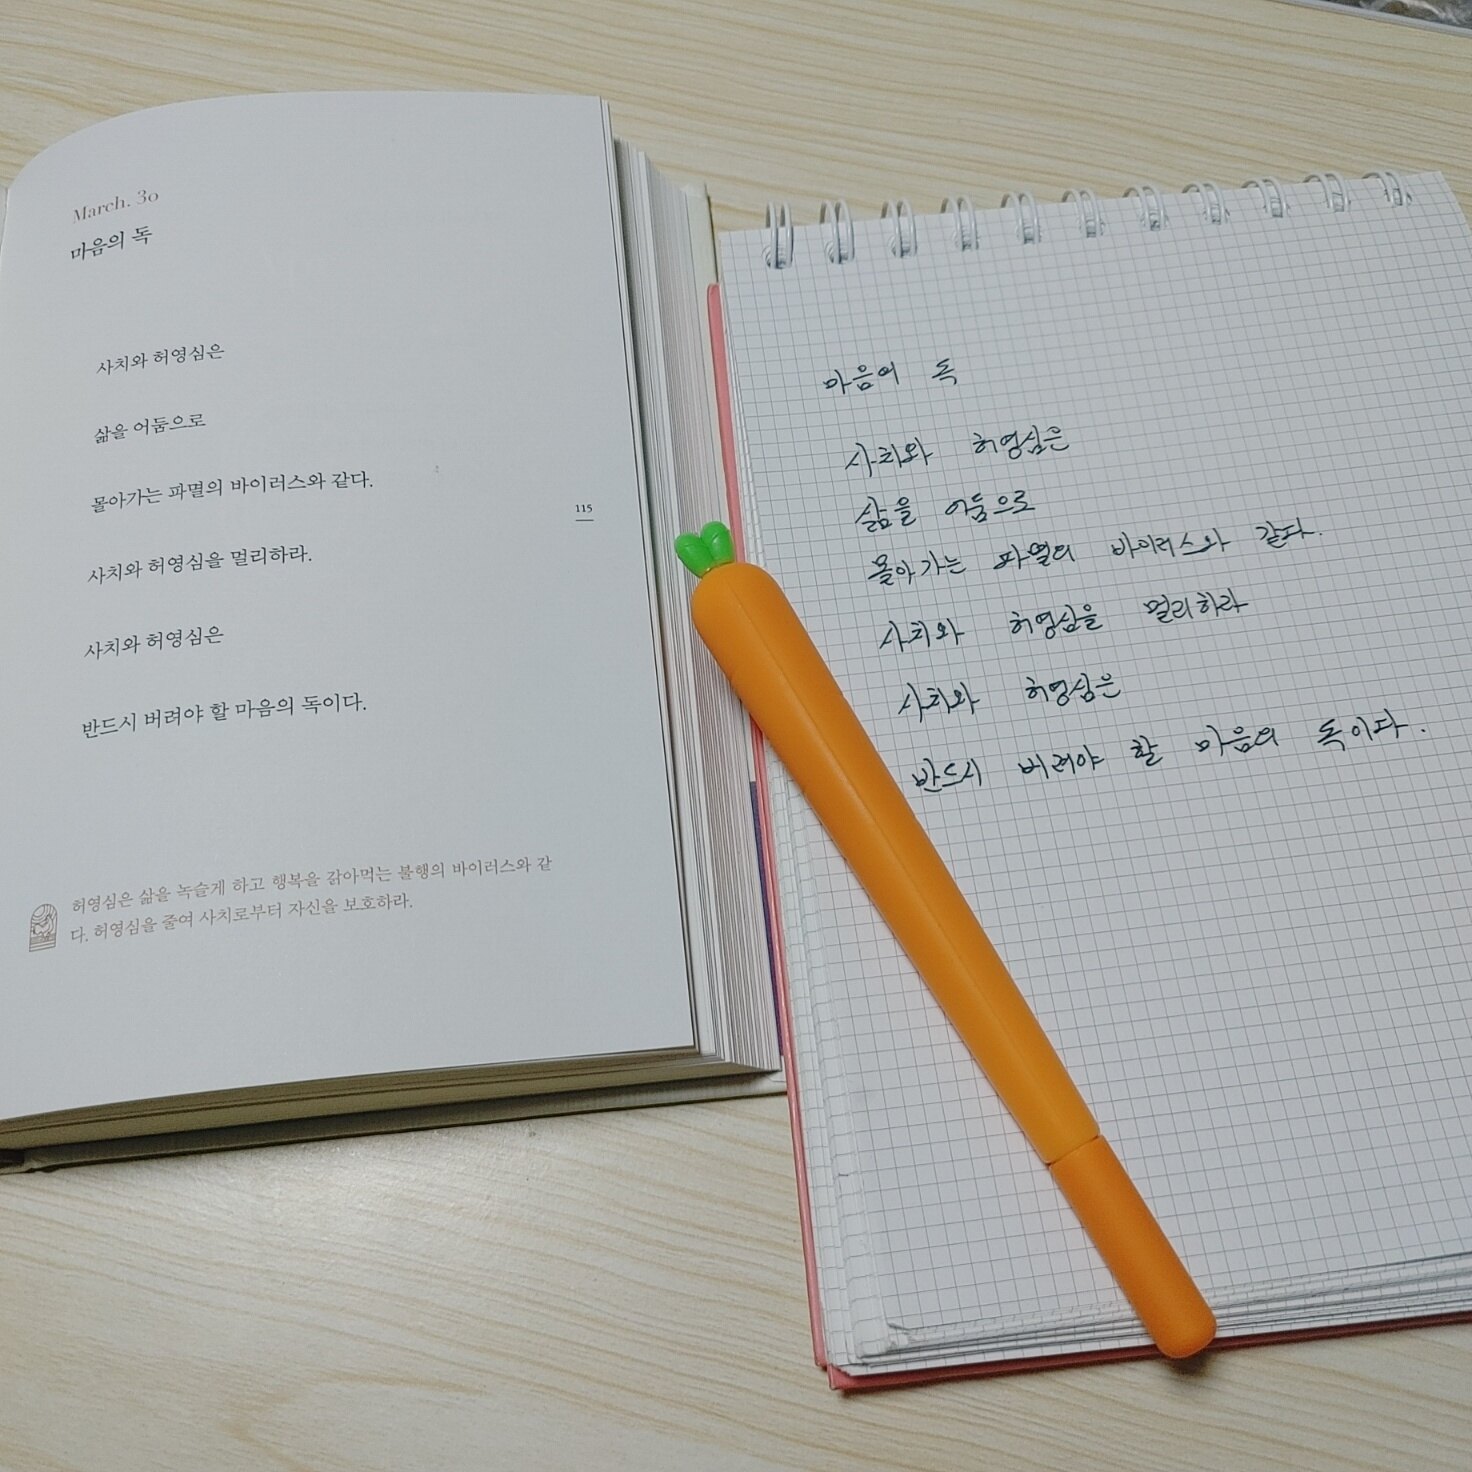 March. 30
마음의 독
사치와 허영심은
삶을 어둠으로
몰아가는 파멸의 바이러스와 같다.
사치와 허영심을 멀리하라.
사치와 허영심은
반드시 버려야 할 마음의 독이다.
115
허영심은 삶을 녹슬게 하고 행복을 갉아먹는 불행의 바이러스와 같
다. 허영심을 줄여 사치로부터 자신을 보호하라.
마음의 독
사치와 허영심은
삶을 어둠으로
몰아가는 파멸의 바이러스와 같다.
사치와 허영심을 멀리하라
사치와 허영심은
반드시 버려야 할 마음의 독이다.